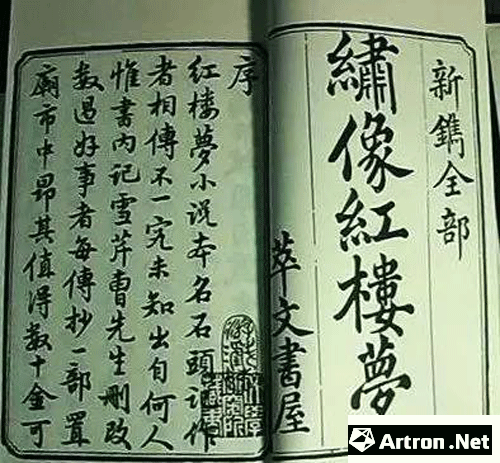 新鐫全部
繡像紅樓夢
萃文書屋
序
紅樓夢小說本名石頭記作
者相傳不一究未知出自何人
惟書内記雪芹曹先生刪改
數過好事者每傳抄一部置
廟市中昂其值得數十金可
Artron.Net